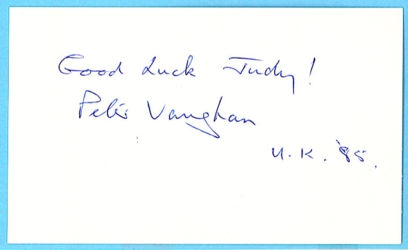 Good Luck Judy!
Peter Vaughan
U.K. '85.